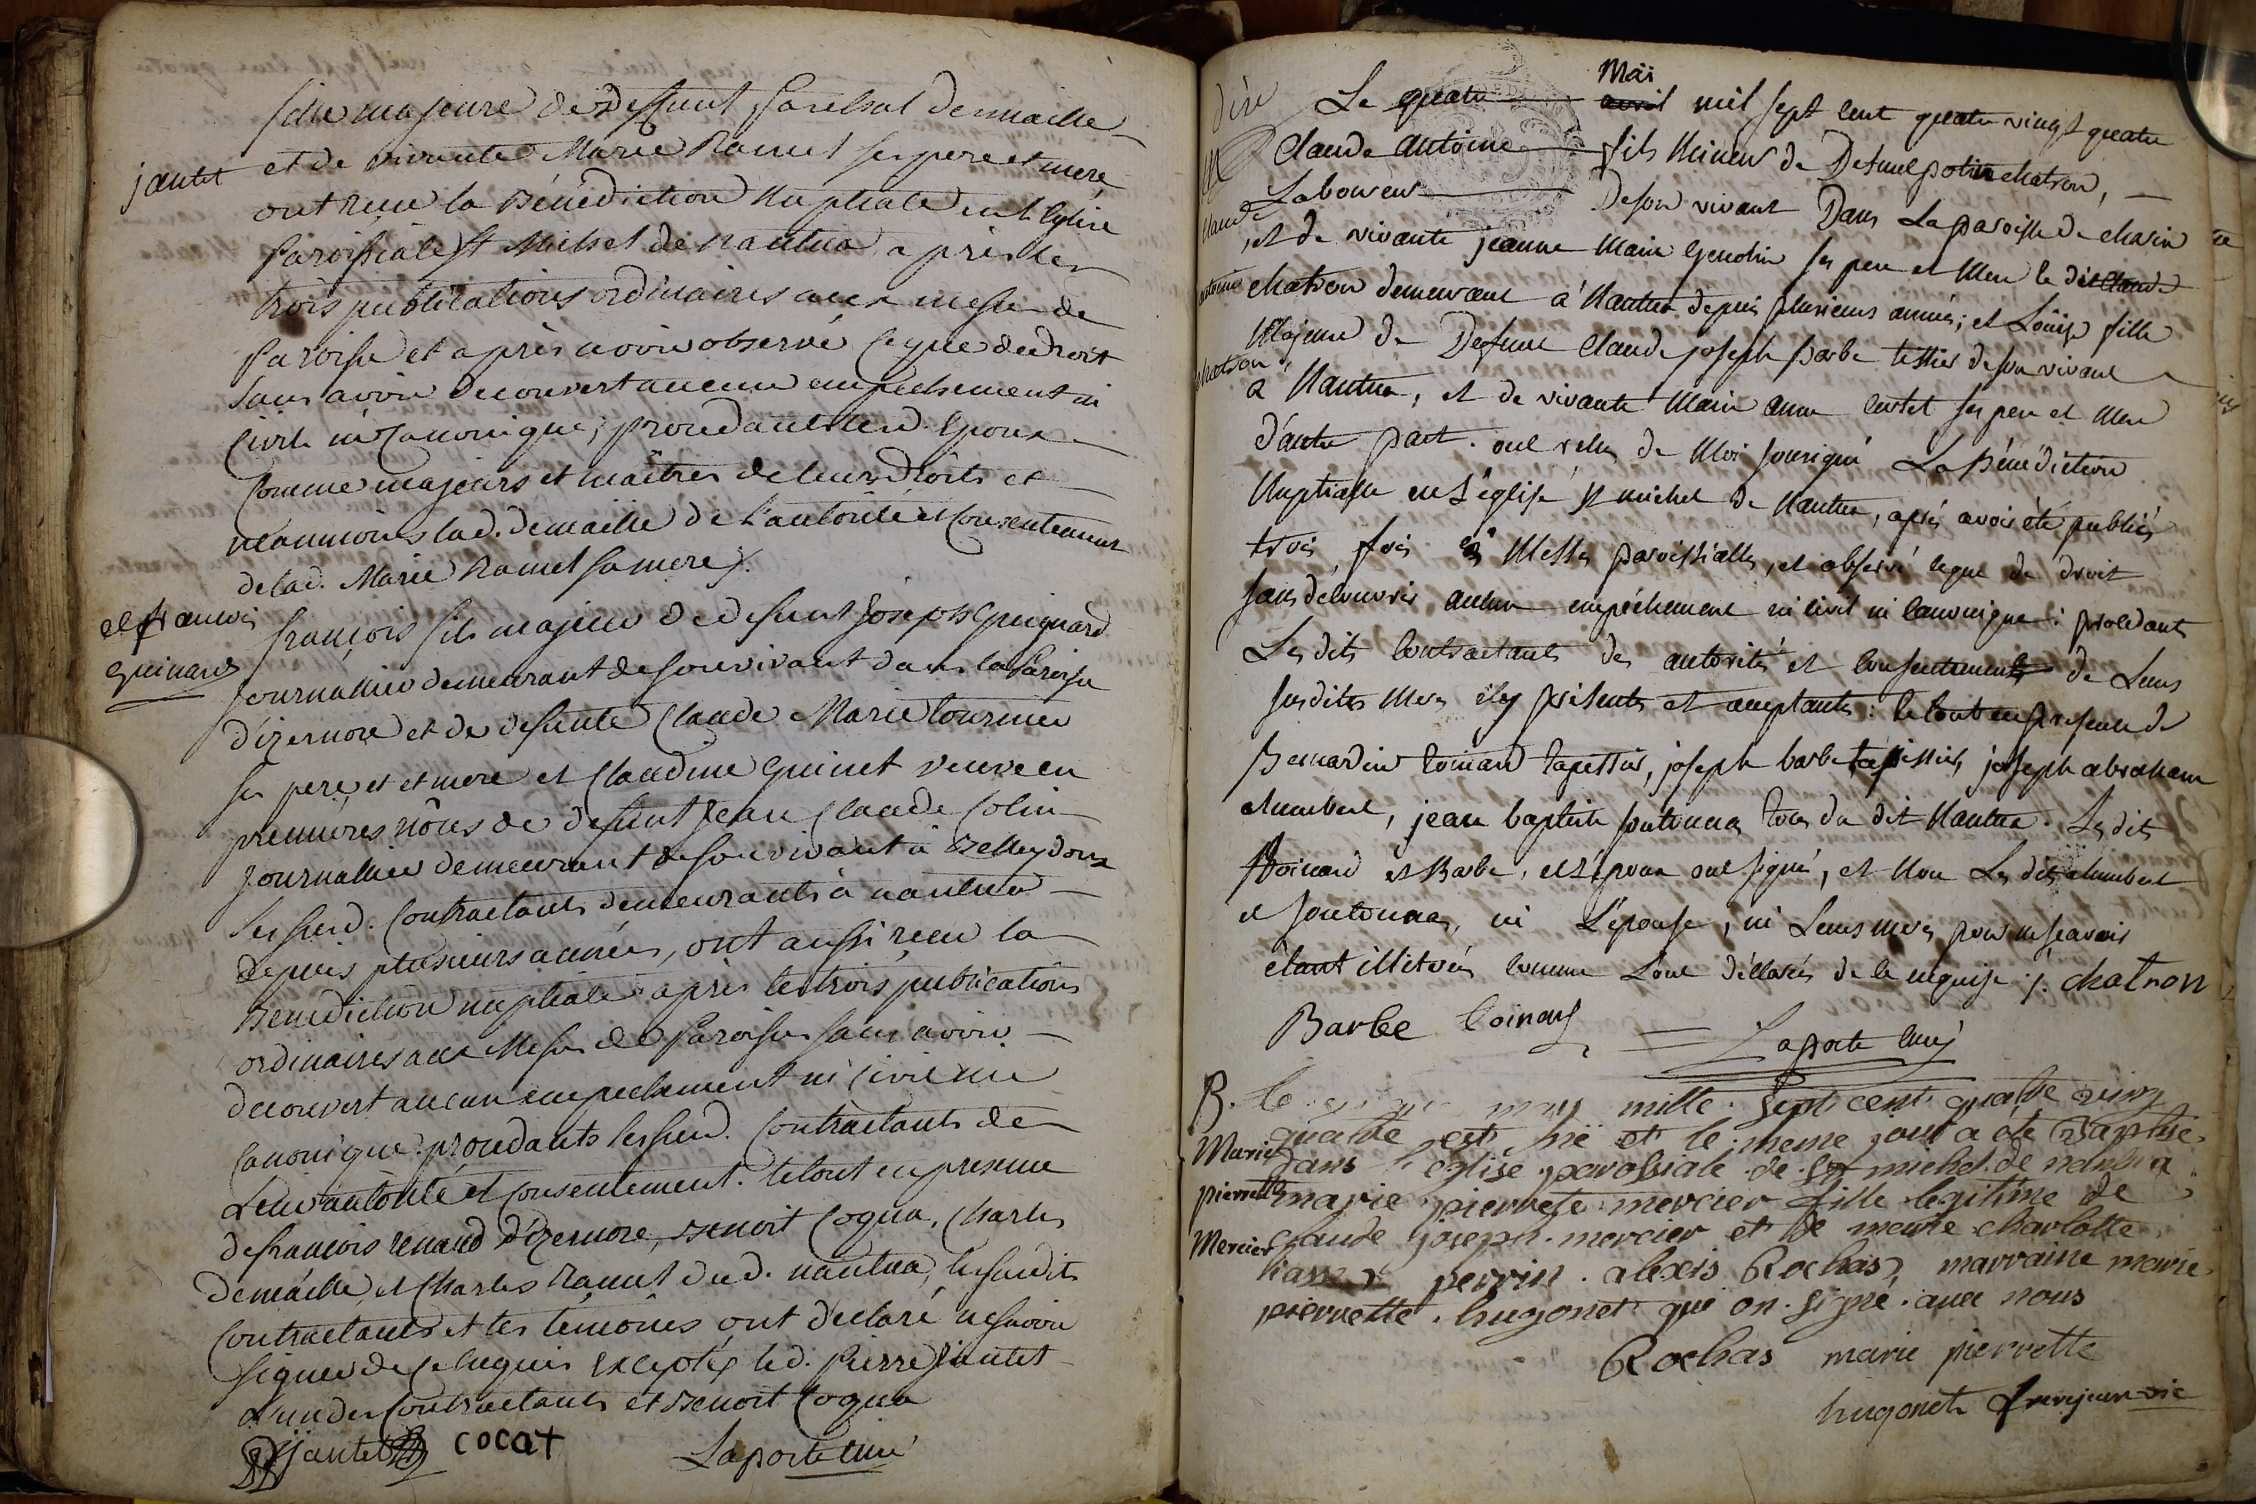 fille majeure de deffunt demaille
jantet
et de vivante Marie Ramel ses pere et mere
ont reçu la Bénédiction Nuptiale en l'Eglise
Paroissiale St Michel de nantua, après les
trois publications ordinaires aux messes de
Paroisse et après avoir observé ce que de droit
sans avoir decouvert aucun empechement ni
Civil ni Canonique; procedants led. Epoux
Comme majeurs et maîtres de leurs droits et
neanmoins lad. demaille de l'autorité et Consentement
de lad. Marie Ramel sa mere.
et françois
guinard
françois fils majeur de defunt Joseph guignard
journallier demeurant de son vivant dans la Paroisse
d'izernore et de defunte Claude Marie tournier
ses pere et et mere et Claudine guinet veuve en
premières nôces de defunt Jean Claude Colin
journallier demeurant de son vivant à Belleydoux
les susd. Contractants demeurants à nantua
depuis plusieurs années, ont aussi reçu la
Benediction nuptiale après les trois publications
ordinaires aux Messes de Paroisse sans avoir
decouvert aucun empechement ni Civil ni
Canonique: procedants les susd. Contractants de
Leur autorité et Consentement. le tout en presence
de françois renaud d'izernore, Benoit Coqua, Charles
demaille, et Charles Ramel dud. nantua, les susdits
Contractants et les témoins ont declaré ne savoir
signer de ce enquis Exceptés led. Pierre Jantet
L'un des Contractants et Benoit Coqua
jantet cocat Laporte curé
Le quatre Mai avril mil sept cent quatre vingt quatre
Claude Antoine fils Mineur de Defunt chatron,
Laboureur De son vivant Dans La paroisse de
Claude
antoine
chatron
et de vivante jeanne Marie ses pere et Mere le dit Claude
chatron demeurant à Nantua depuis plusieurs années; et Loüise fille
Majeure de Defunt Claude joseph Barbe tessier de son vivant
à Nantua, et de vivante Marie Anne ses pere et Mere
d'autre part. ont reçu de Moi soussigné La Bénédiction
Nuptialle en L'église St michel de Nantua, après avoir été publiés
trois fois ès Messes paroissialles, et observé ce que de droit
sans découvrir aucun empêchement ni civil ni canonique: procédants
Les dits Contractants des autorités et consentements de Leurs
susdites Meres icy présentes et acceptantes: le tout en presence de
Bernardin Coinard tapissier, joseph barbe tapissier, joseph abraham
humbert, jean baptiste tous du dit Nantua. Les dits
Coinard et Barbe, et L'époux ont signé, et Non Les dits humbert
et ni L'épouse, ni Leurs meres pour ne sçavoir
étant illitérés comme L'ont déllarés de le requise. j. chatron
Barbe Coinard
Laporte Curé
B.
Marie
pierrette
Mercier
le may mille sept cent quatre vinq
quatre est né et le meme jour a été Baptisé
dans l'eglise parossiale de St michel de nantua
marie pierrete mercier fille legitime de
claude joseph mercier et de marie charlotte
perrin. alexis Rochas, marraine marie
pierrette hugonet qui on signé avec nous
Rochas marie pierrette
hugonet vic